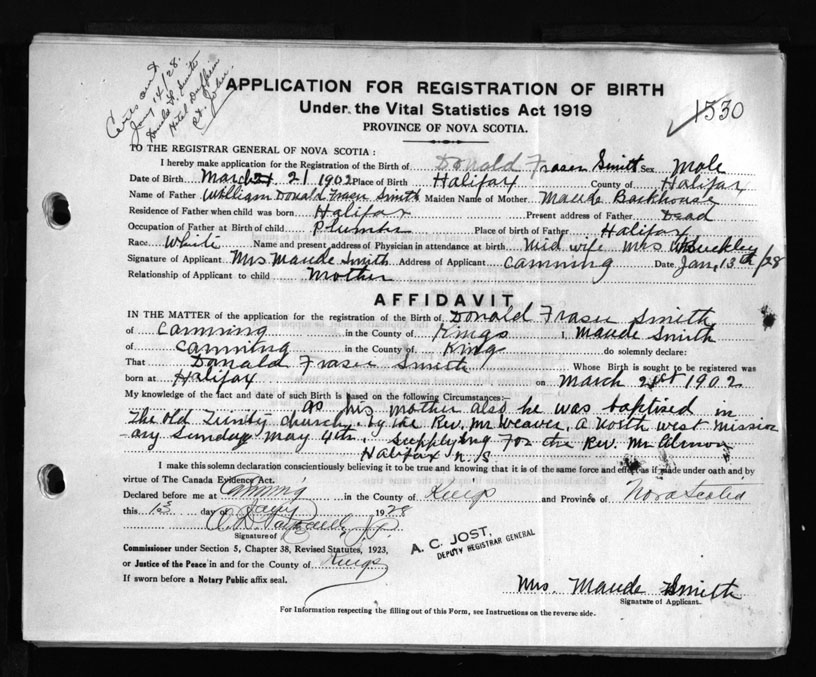 Cert sent
Jany 14/28.
Donald F. Smith
Hotel Dufferin
St. John.
1530
APPLICATION FOR REGISTRATION OF BIRTH
Under the Vital Statistics Act 1919
PROVINCE OF NOVA SCOTIA.
TO THE REGISTRAR GENERAL OF NOVA SCOTIA:
I hereby make application for the Registration of the Birth of Donald Fraser Smith Sex Male
Date of Birth March 21 1902 Place of Birth Halifax County of Halifax
Name of Father William Donald Fraser Smith Maiden Name of Mother Maude Backhouse
Residence of Father when child was born Halifax Present address of Father Dead
Occupation of Father at Birth of child Plumber Place of birth of Father Halifax
Race White Name and present address of Physician in attendance at birth Mid wife Mrs Buckley
Signature of Applicant Mrs Maude Smith Address of Applicant Canning Date Jan, 13th/28
Relationship of Applicant to child Mother
AFFIDAVIT
IN THE MATTER of the application for the registration of the Birth of Donald Fraser Smith
of Canning in the County of Kings I, Maude Smith
of Canning in the County of King do solemnly declare:
That Donald Fraser Smith Whose Birth is sought to be registered was
born at Halifax on March 21st 1902
My knowledge of the fact and date of such Birth is based on the following Circumstances:—
as his mother also he was baptised in
The old Trinity church, by the Rev. Mr Weaver, a north west mission
ary Sunday May 4th, supplying for the Rev. Mr Almon
Halifax N.S
I make this solemn declaration conscientiously believing it to be true and knowing that it is of the same force and effect as if made under oath and by
virtue of The Canada Evidence Act.
Declared before me at Canning in the County of Kings and Province of Nova Scotia
this 13 day of Jany 1928
J.P.
Signature of
Commissioner under Section 5, Chapter 38, Revised Statutes, 1923,
or Justice of the Peace in and for the County of Kings
If sworn before a Notary Public affix seal.
A. C. JOST.
DEPUTY REGISTRAR GENERAL
Mrs. Maude Smith
Signature of Applicant.
For Information respecting the filling out of this Form, see Instructions on the reverse side.